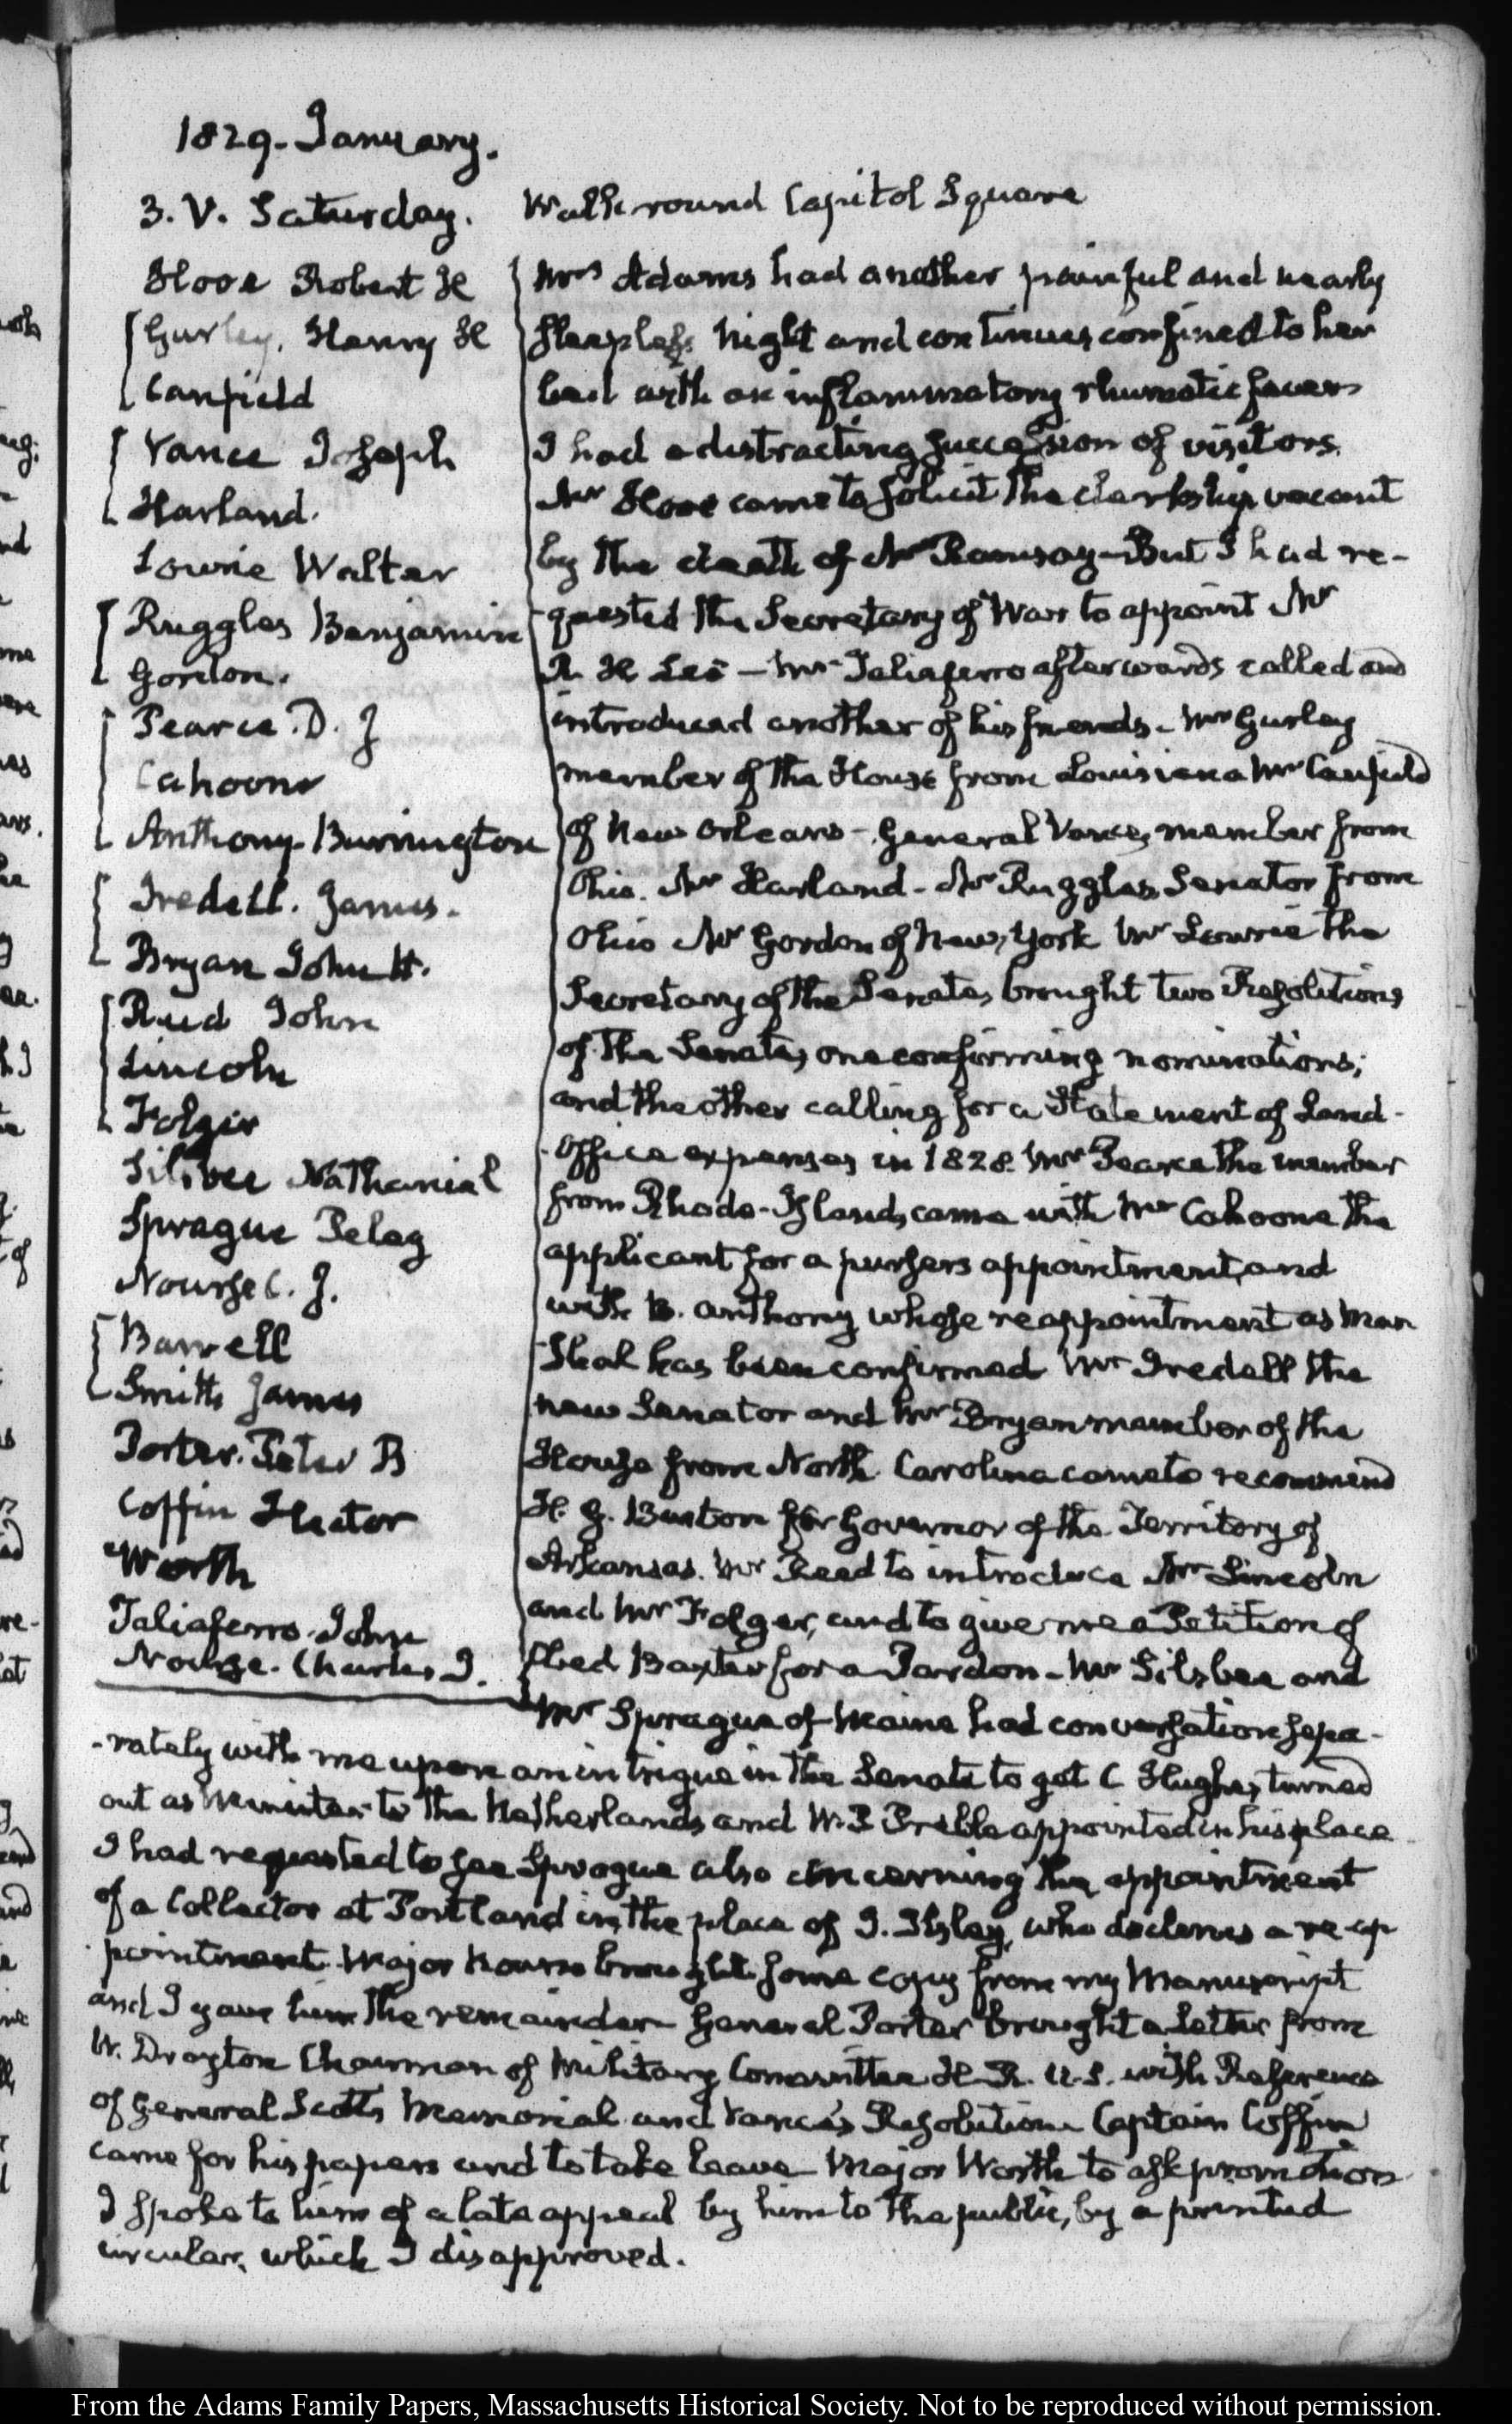 1829. January.
3. V. Saturday.
Hooe Robert H
Gurley. Henry H
Canfield
Vance Joseph
Harland.
Lowrie Walter
Ruggles Benjamin
Gordon.
Pearce. D. J
Cahoone
Anthony. Burrington
Iredell. James.
Bryan John H.
Reed John
Lincoln
Folger
Silsbee Nathaniel
Sprague Peleg
Nourse C. J.
Barrell
Smith James
Porter. Peter B
Coffin Hector
Worth
Taliaferro. John
Nourse. Charles J.
Walk round Capitol Square
Mrs Adams had another painful and nearly
sleepless night and continues confined to her
bed with an inflammatory rhumatic fever
I had a distracting succession of visitors.
Mr Hooe came to solicit the clerkship vacant
by the death of Mr Ramsay — But I had re-
quested the Secretary of War to appoint Mr
R H Lee — Mr Taliaferro afterwards called and
introduced another of his friends. Mr Gurley
member of the House from Louisiana Mr Canfield
of New Orleans — General Vance, member from
Ohio. Mr Harland — Mr Ruggles Senator from
Ohio Mr Gordon of New York Mr Lowrie the
Secretary of the Senate, brought two Resolutions
of the Senate, one confirming nominations;
and the other calling for a Statement of Land-
Office expenses in 1828. Mr Pearce the member
from Rhode-Island, came with Mr Cahoone the
applicant for a pursers appointment, and
with B. Anthony whose reappointment as Mar
-shal has been confirmed Mr Iredell the
new Senator and Mr Bryan member of the
House from North Carolina came to recommend
H. G. Burton for Governor of the Territory of
Arkansas. Mr Reed to introduce Mr Lincoln
and Mr Folger, and to give me a Petition of
Baxter for a Pardon — Mr Silsbee and
Mr Sprague of Maine had conversation sepa-
-rately with me upon an intrigue in the Senate to get C Hughes turned
out as Minister to the Netherlands and W. P Preble appointed in his place
I had requested to see Sprague also concerning the appointment
of a Collector at Portland in the place of I. Ilsley, who declines a re-ap
pointment. Major Nourse brought some copy from my Manuscript
and I gave him the remainder — General Porter brought a letter from
W. Drayton Chairman of Military Committee H. R. U.S. with Reference
of General Scott's Memorial and Vance's Resolution. Captain Coffin
came for his papers and to take leave — Major Worth to ask promotion
I spoke to him of a late appeal by him to the public, by a printed
circular, which I disapproved.
From the Adams Family Papers, Massachusetts Historical Society. Not to be reproduced without permission.